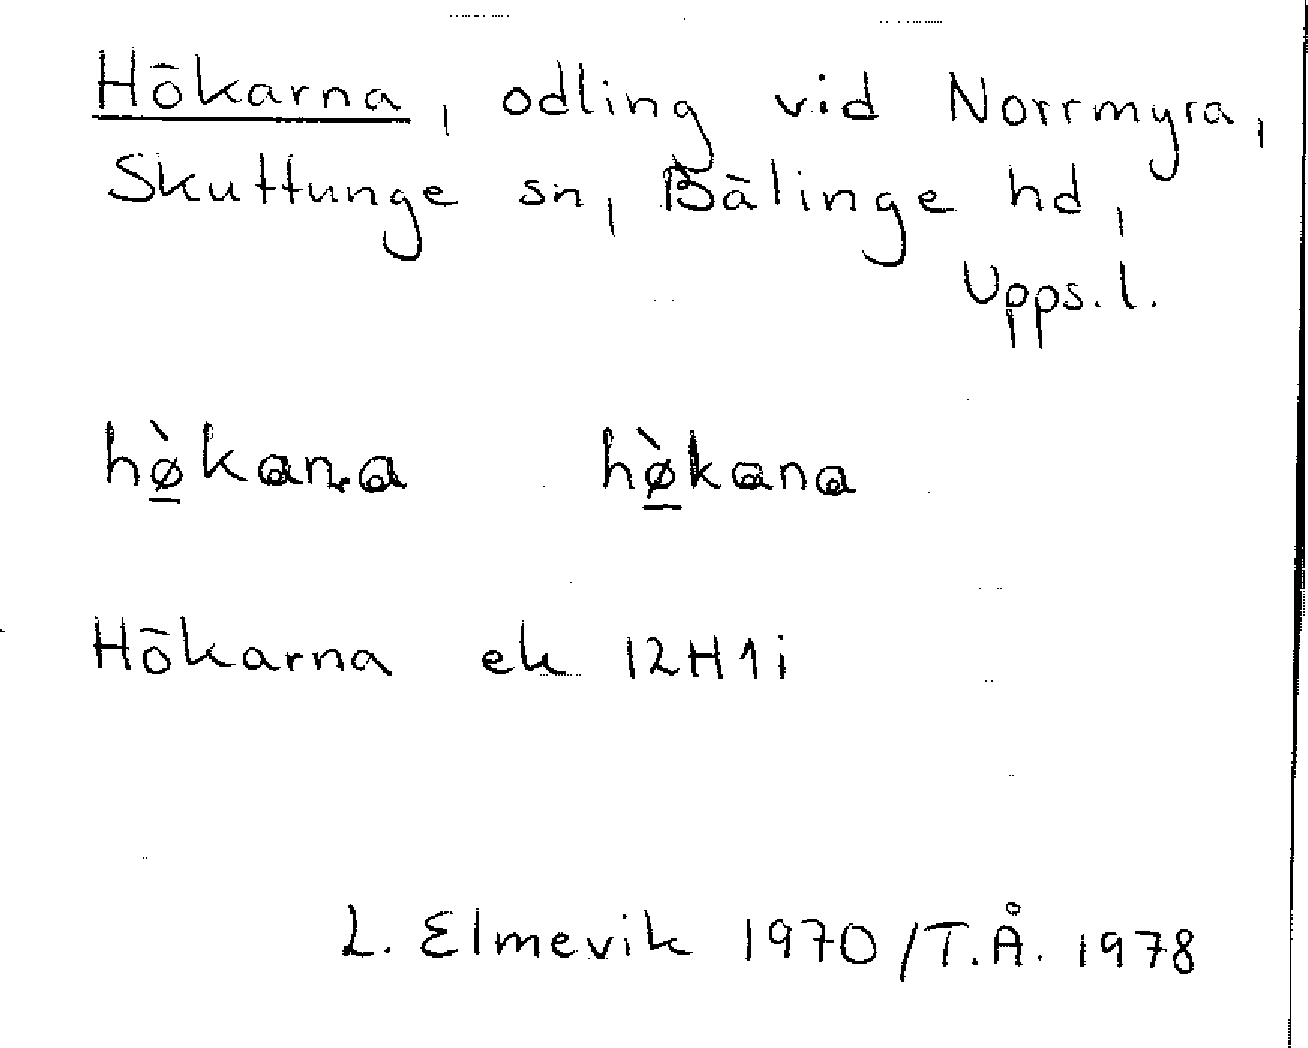 Hökarna, odling vid Norrmyra,
Skuttunge sn, Bälinge hd,
Upps. l.
hø̀kana hø̀kana
Hökarna ek 12H1i
L. Elmevik 1970/T.Å. 1978